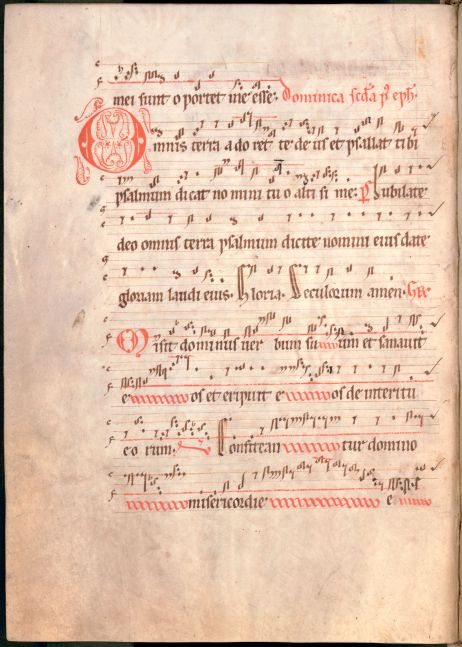 mei sunt oportet me esse. Dominica scda p⁹ eph.
Omnis terra adoret te deus et psallat tibi
psalmum dicat nomini tuo altissime. p Iubilate
deo omnis terra psalmum dicite nomini eius date
gloriam laudi eius. Gloria. Seculorum amen. Gr.
Misit dominus verbum suum et sanavit
eos et eripuit eos de interitu
eorum. V Confitean tur domino
misericordie e